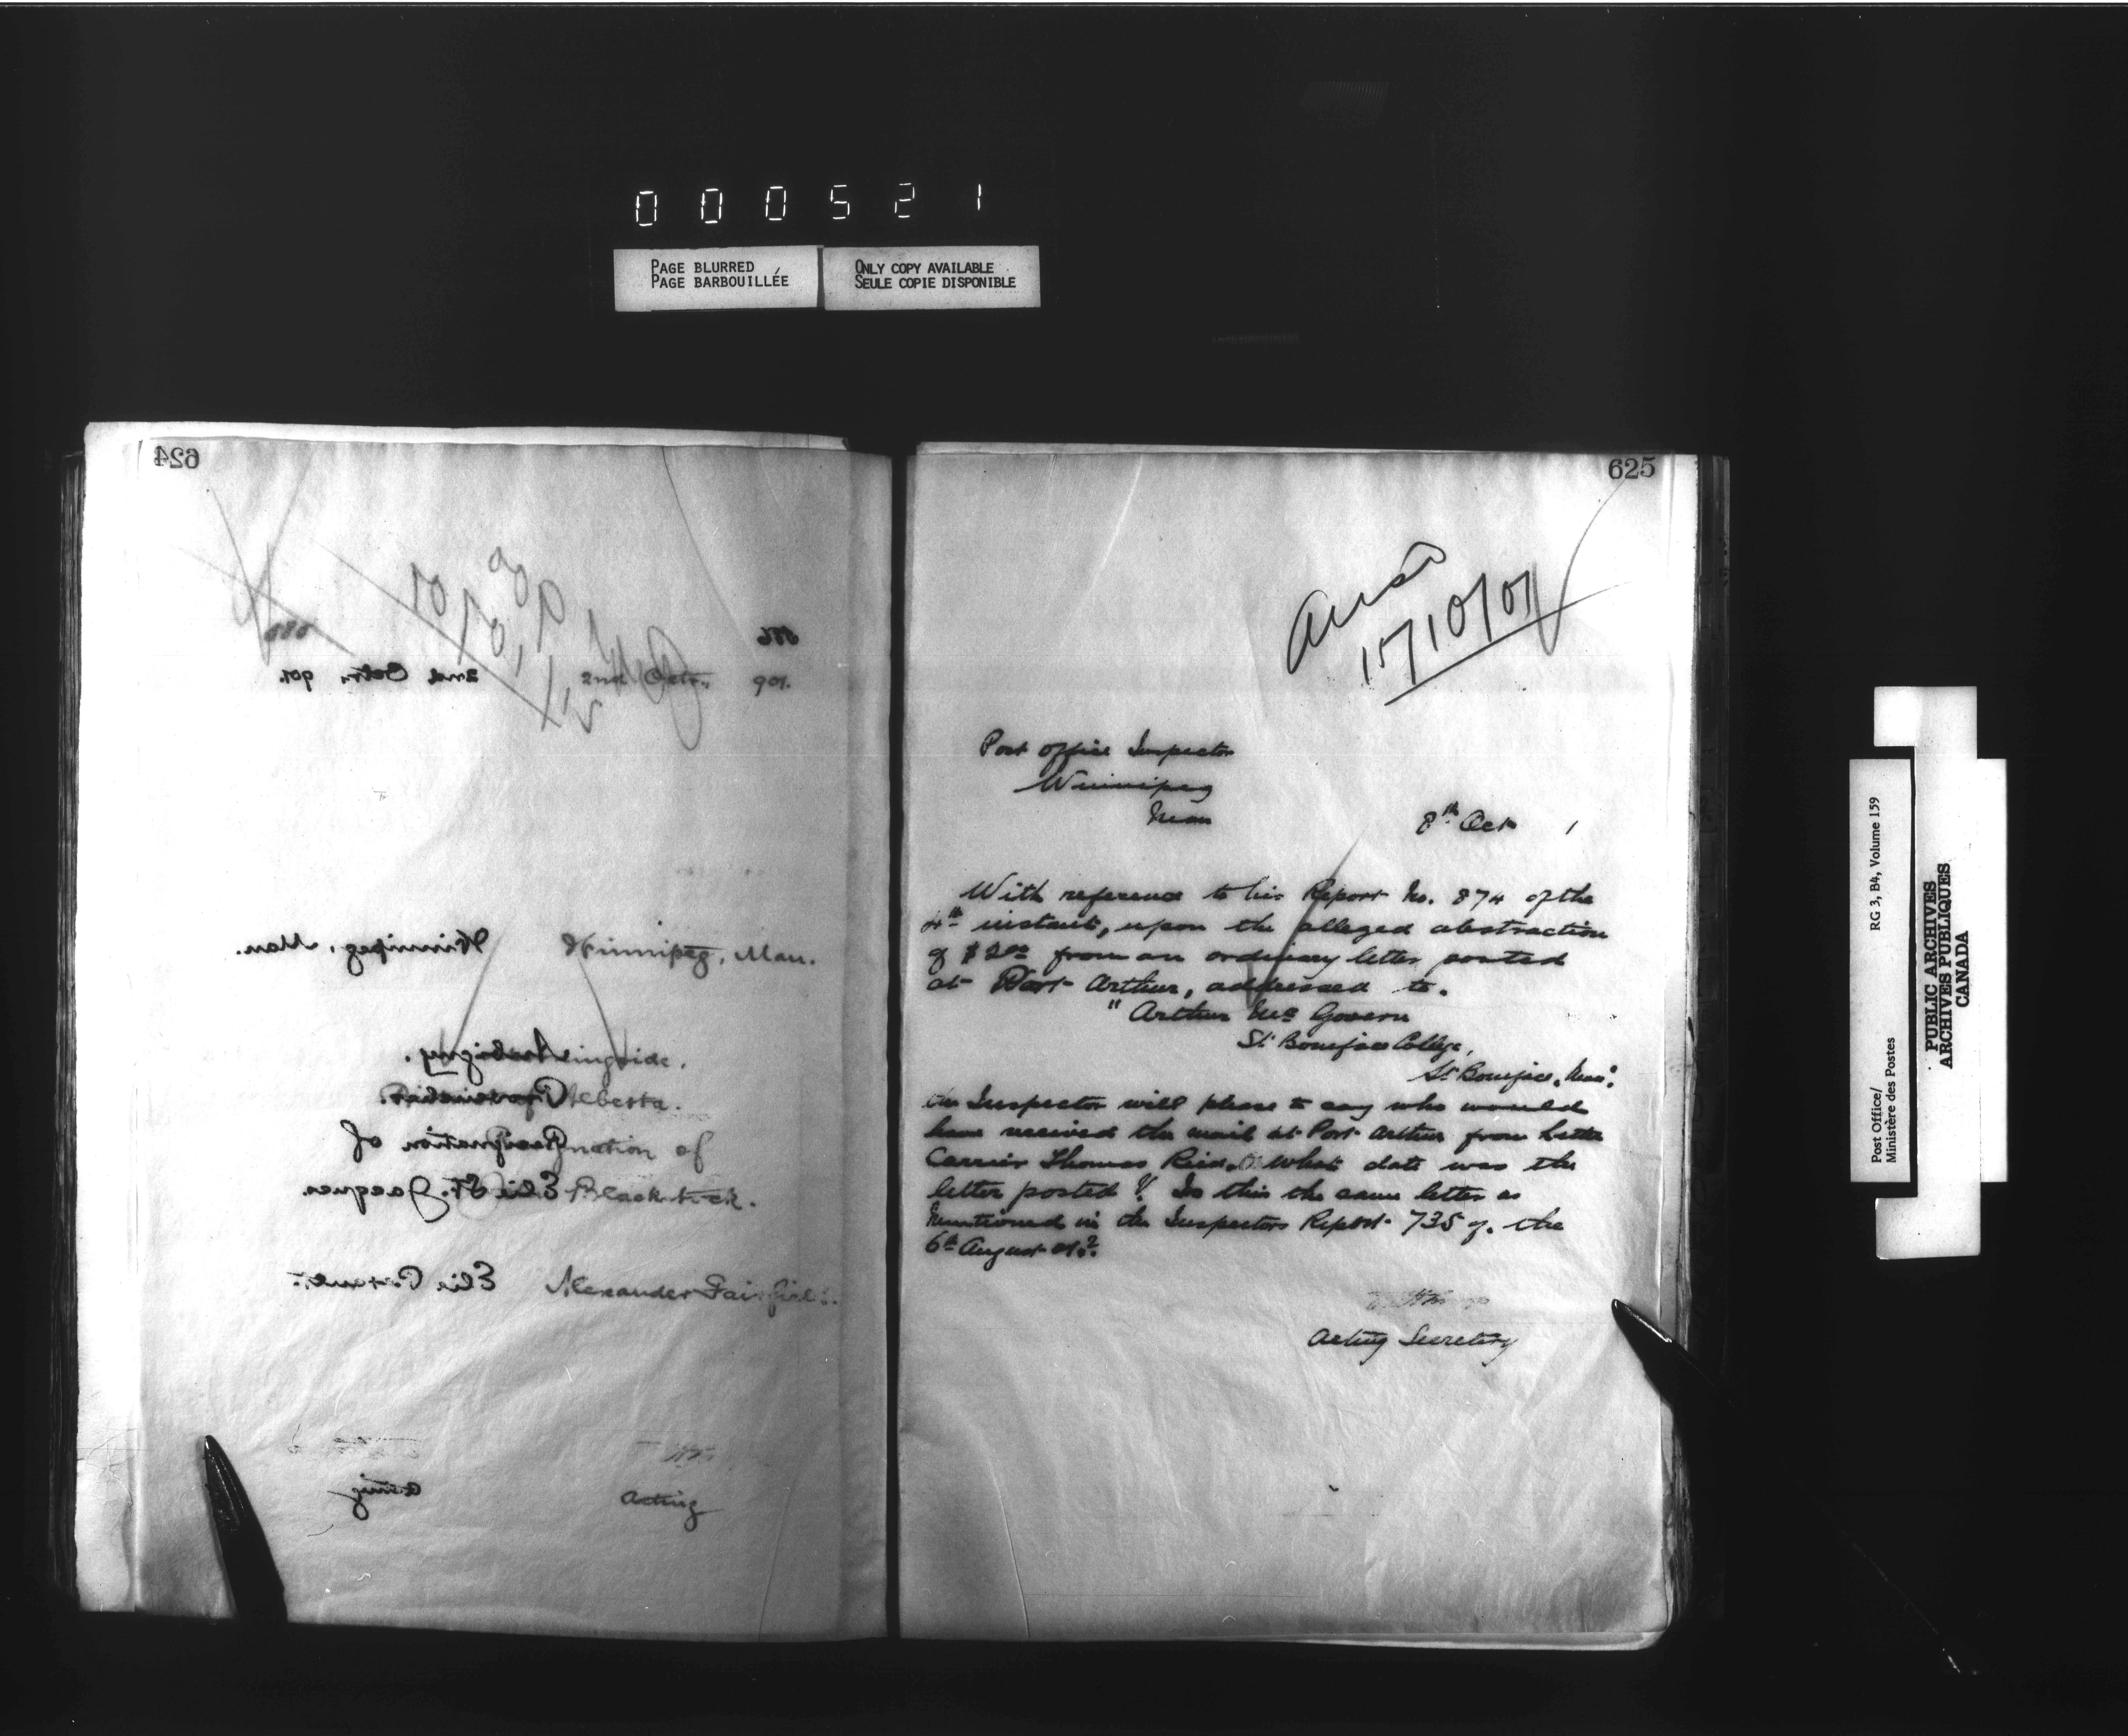 000521
PAGE BLURRED
PAGE BARBOUILLÉE
ONLY COPY AVAILABLE
SEULE COPIE DISPONIBLE
624
886
2nd Octr. 901.
2nd Octr. 901.
Winnipeg, Man.
Winnipeg, Man.
Alberta.
Resignation of
Elie St. Jacques.
Blackstock.
Alexander Fairfield.
Acting
Acting
625
Ansd
15/10/01
Post Office Inspector
Winnipeg
Man
8th Oct 1
With reference to his Report No. 874 of the
4th instant, upon the alleged abstraction
of $2.00 from an ordinary letter posted
at Port Arthur, addressed to.
"Arthur McGovern
St. Boniface College,
St. Boniface, Man".
the Inspector will please to say who would
have received the mail at Port Arthur from Letter
Carrier Thomas Reid. On what date was the
letter posted? Is this the same letter as
mentioned in the Inspectors Report 735 of the
6th August 01.?
Acting Secretary
Post Office/
Ministère des Postes
RG 3, B4, Volume 159
PUBLIC ARCHIVES
ARCHIVES PUBLIQUES
CANADA